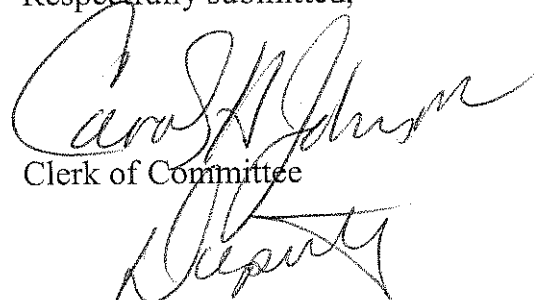 Respectfully submitted,
Carol A Johnson
Clerk of Committee
Deputy